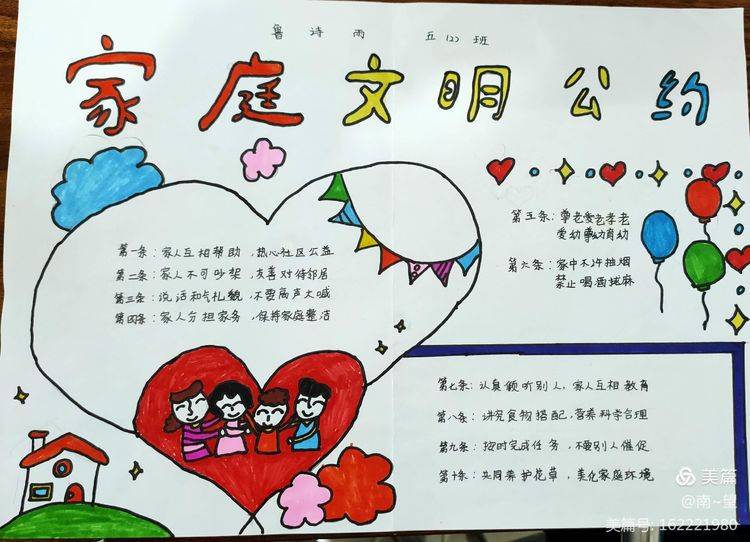 鲁诗雨 五(2)班
家庭文明公约
第一条：家人互相帮助，热心社区公益
第二条：家人不可吵架，友善对待邻居
第三条：说话和气礼貌，不要高声大喊
第四条：家人分担家务，保持家庭整洁
第五条：尊老爱老孝老
爱幼育幼
第六条：家中不许抽烟
禁止喝酒搓麻
第七条：认真倾听别人，家人互相教育
第八条：讲究食物搭配，营养科学合理
第九条：按时完成任务，不要别人催促
第十条：共同养护花草，美化家庭环境
美篇
@南~望
美篇号: 162221980